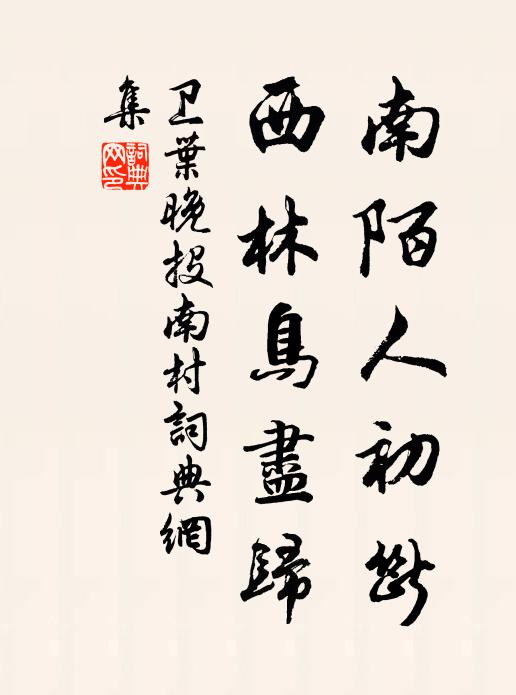 南陌人初斷
西林鳥盡歸
卫葉晚投南村詞典網
集
詞典
网印